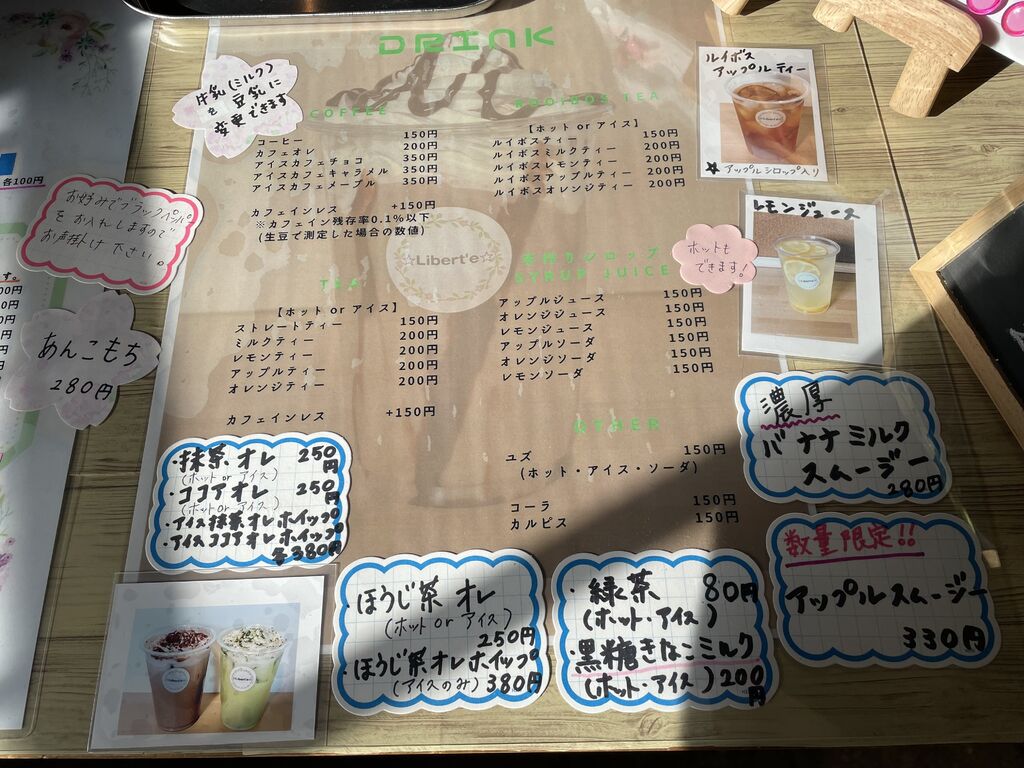 DRINK
牛乳(ミルク)
を豆乳に
変更できます
COFFEE
コーヒー 150円
カフェオレ 200円
アイスカフェチョコ 350円
アイスカフェキャラメル 350円
アイスカフェメープル 350円
カフェインレス +150円
※カフェイン残存率0.1%以下
(生豆で測定した場合の数値)
ROOIBOS TEA
【ホット or アイス】
ルイボスティー 150円
ルイボスミルクティー 200円
ルイボスレモンティー 200円
ルイボスアップルティー 200円
ルイボスオレンジティー 200円
ルイボス
アップルティー
★アップルシロップ入り
各100円
お好みでブラックペッパー
をお入れしますので
お声掛け下さい。
☆Libert'e☆
TEA
【ホット or アイス】
ストレートティー 150円
ミルクティー 200円
レモンティー 200円
アップルティー 200円
オレンジティー 200円
カフェインレス +150円
手作りシロップ
SYRUP JUICE
アップルジュース 150円
オレンジジュース 150円
レモンジュース 150円
アップルソーダ 150円
オレンジソーダ 150円
レモンソーダ 150円
ホットも
できます!
レモンジュース
あんこもち
280円
OTHER
ユズ 150円
(ホット・アイス・ソーダ)
コーラ 150円
カルピス 150円
濃厚
バナナミルク
スムージー
280円
・抹茶オレ 250円
(ホット or アイス)
・ココアオレ 250円
(ホット or アイス)
・アイス抹茶オレホイップ
・アイスココアオレホイップ
各380円
・ほうじ茶オレ
(ホット or アイス)
250円
・ほうじ茶オレホイップ
(アイスのみ) 380円
・緑茶 80円
(ホット・アイス)
・黒糖きなこミルク
(ホット・アイス) 200円
数量限定!!
アップルスムージー
330円